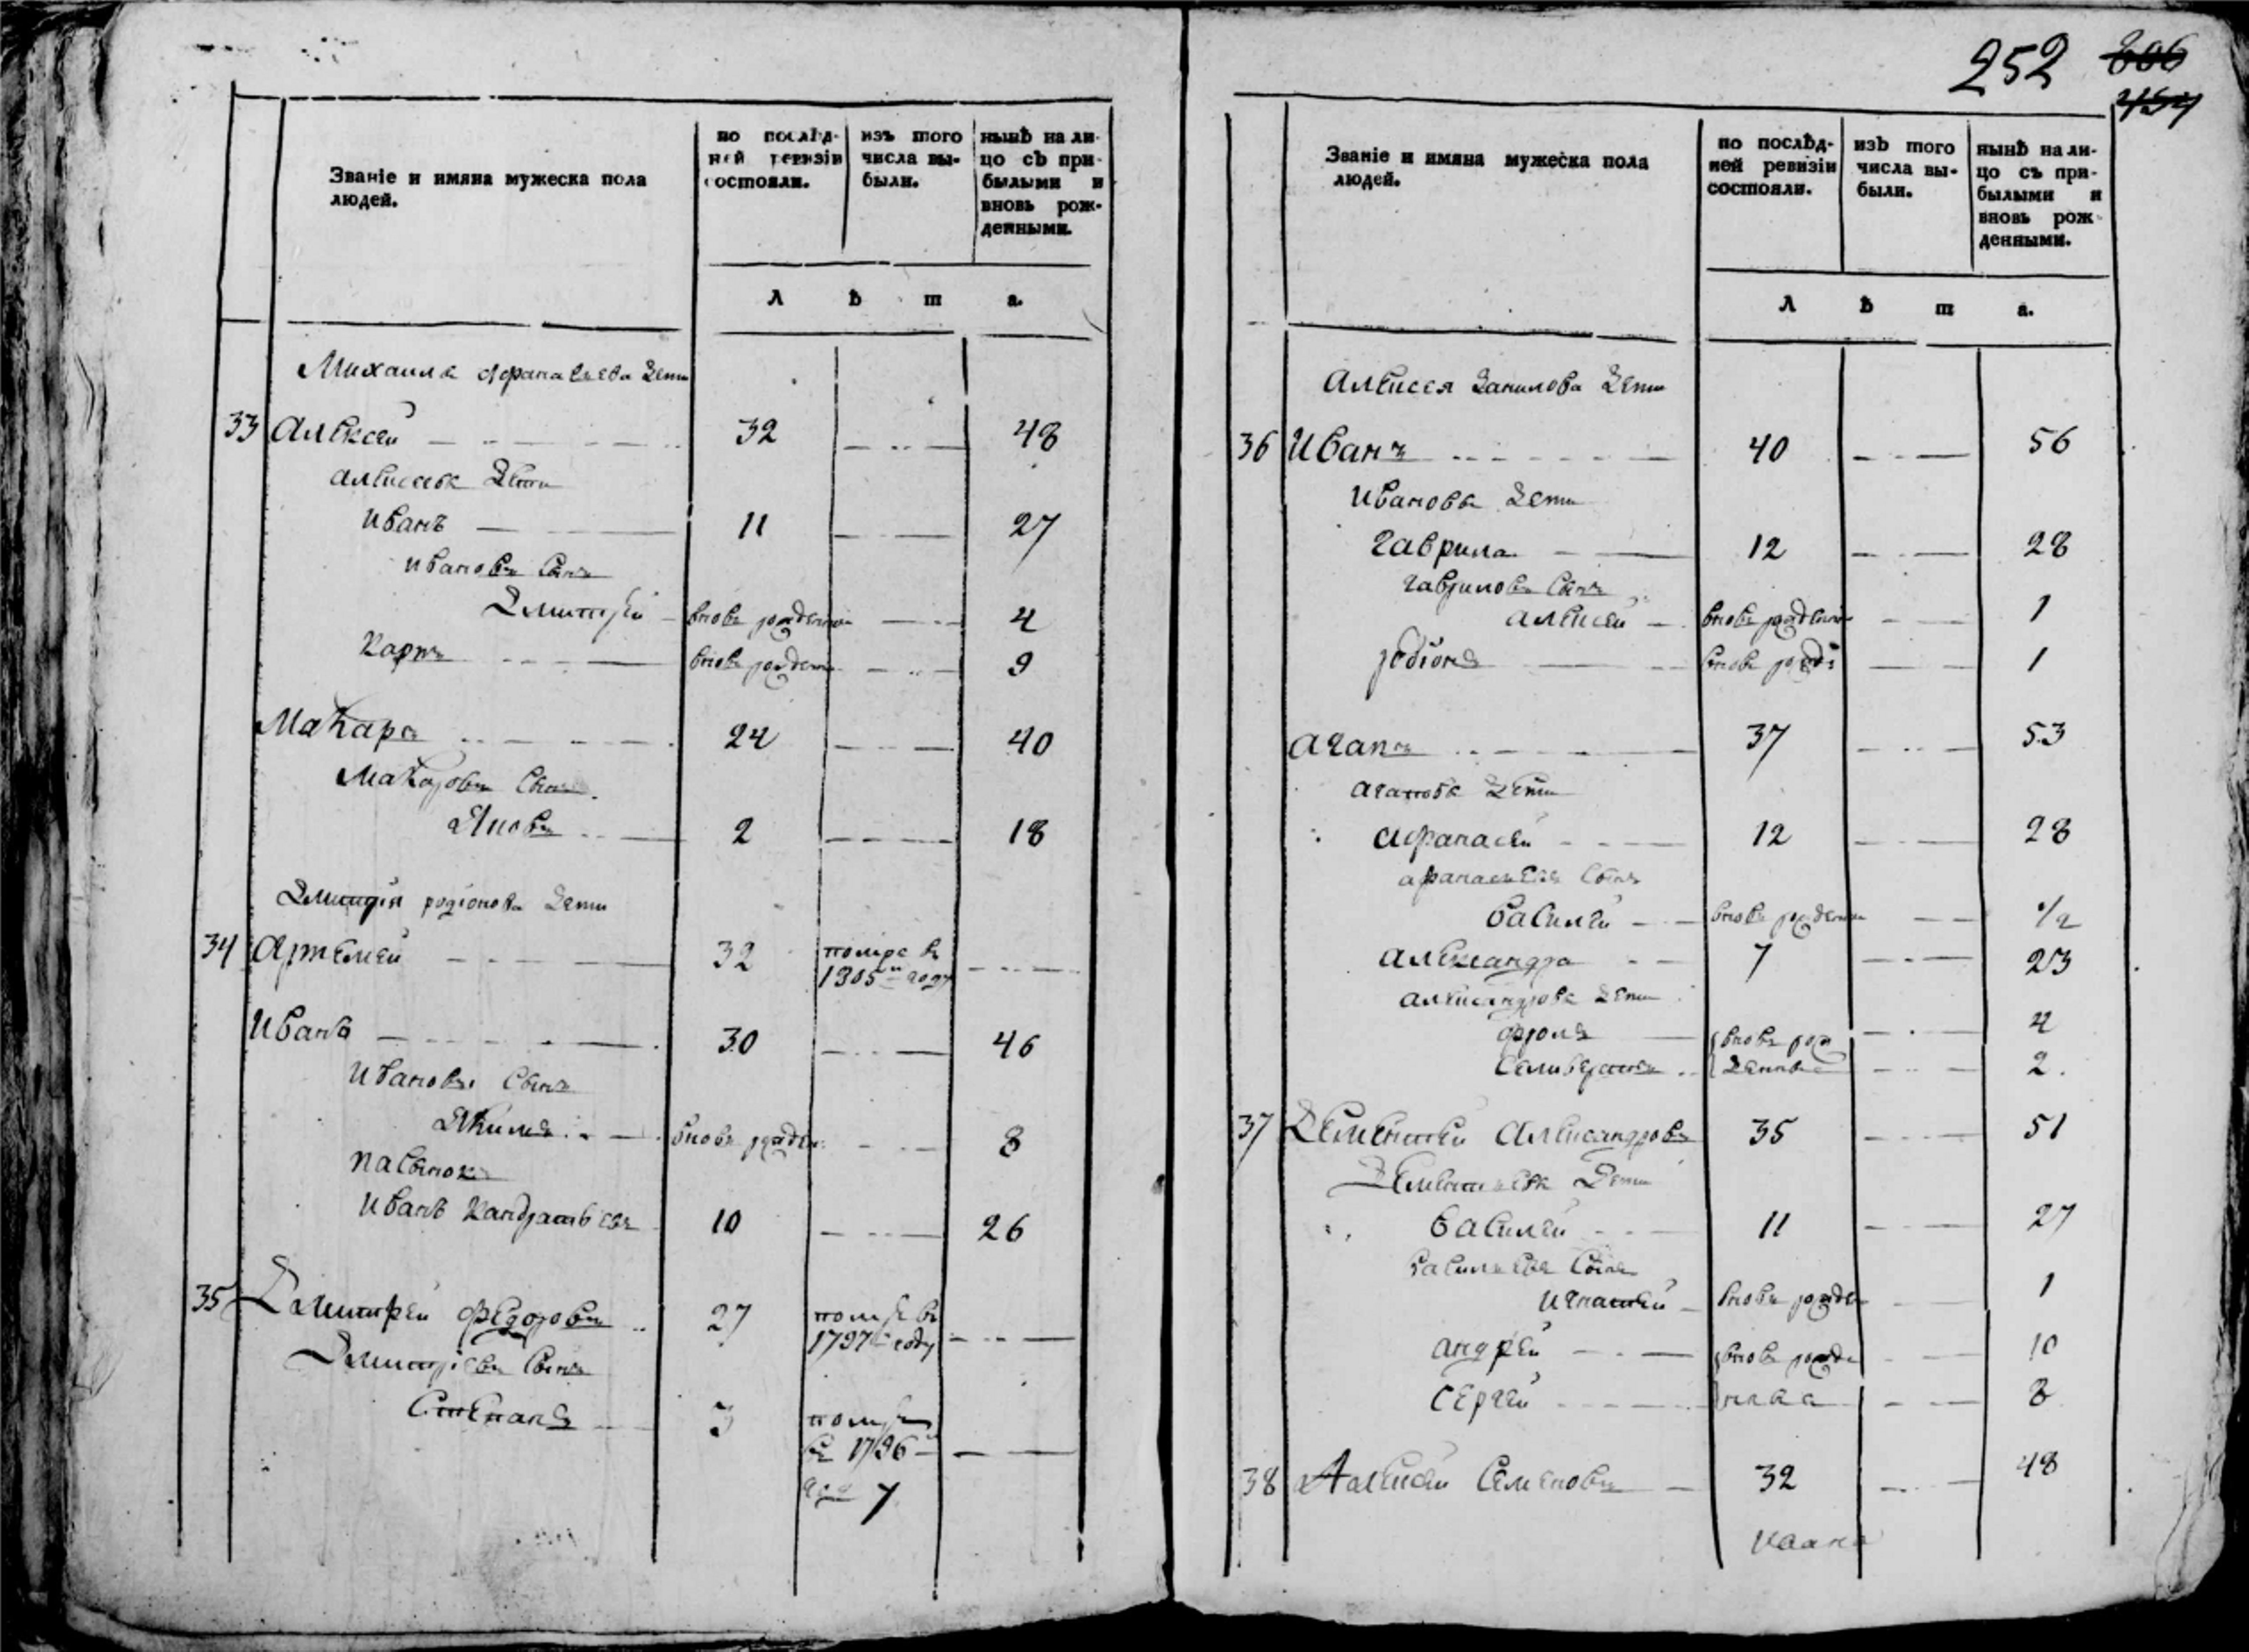 Званіе и имяна мужеска пола
людей.
по послѣд-
ней ревизіи
состояли.
изъ того
числа вы-
были.
нынѣ на ли-
цо съ при-
былыми и
вновь рож-
денными.
Л ѣ т а.
Михаила Афанасьева дети
33 Алексей 32 48
Алексеевы дети
Иванъ 11 27
Ивановъ сынъ
Дмитрей вновь рожденной 4
Карпъ вновь рожденной 9
Макаръ 24 40
Макаровъ сынъ
Яковъ 2 18
Дмитрія родіонова дети
34 Артемей 32 помре въ
1805м году
Иванъ 30 46
Ивановъ сынъ
Якимъ вновь рожден: 8
пасынокъ
Иванъ Кандратьевъ 10 26
35 Дмитрей Федоровъ 27 помре въ
1797м году
Дмитріевъ сынъ
Степанъ 3 помре
въ 1796м
году
252 806
Званіе и имяна мужеска пола
людей.
по послѣд-
ней ревизіи
состояли.
изъ того
числа вы-
были.
нынѣ на ли-
цо съ при-
былыми и
вновь рож-
денными.
Л ѣ т а.
Алексея Данилова дети
36 Иванъ 40 56
Ивановы дети
Гаврила 12 28
Гавриловъ сынъ
Алексей вновь рожденной 1
родіонъ вновь рожде 1
Агапъ 37 53
Агаповы дети
Афанасей 12 28
Афанасьевъ сынъ
Василей вновь рожденной 1/2
Александра 7 23
Александровы дети
Фролъ вновь рож 4
Селиверстъ денные 2.
37 Дементей Александровъ 35 51
Дементьевы дети
Василей 11 27
Васильевъ сынъ
Игнатей вновь рожден 1
Андрей вновь рожде 10
Сергей нныя 8
38 Алексей Семеновъ 32 48